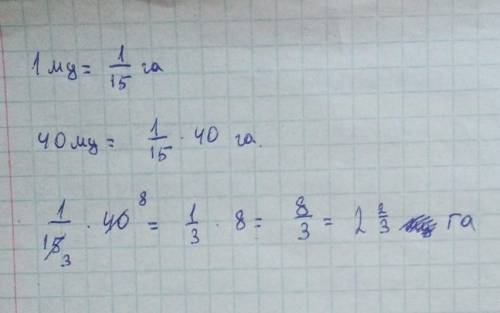 1 му = 1/15 га
40 му = 1/15 · 40 га.
1/15 3 · 40 8 = 1/3 · 8 = 8/3 = 2 2/3 га